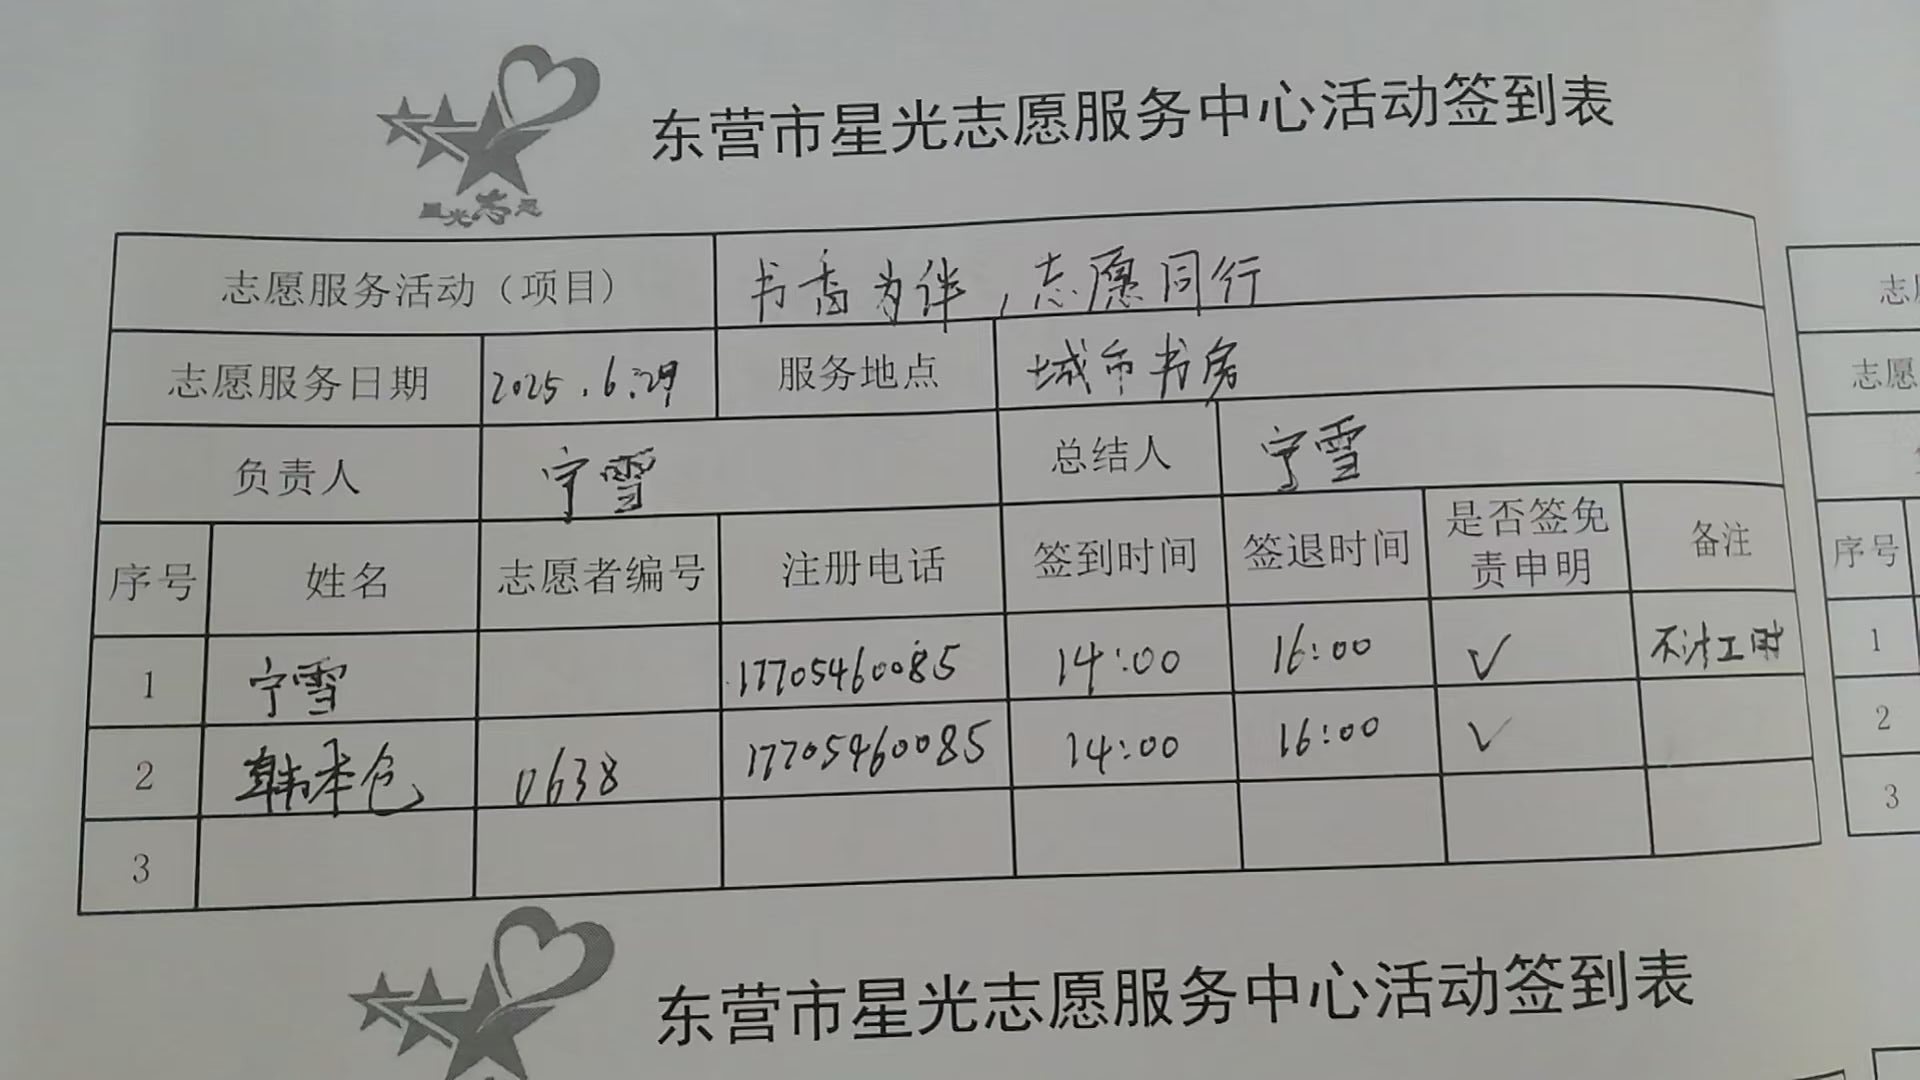 星光志愿
东营市星光志愿服务中心活动签到表
志愿服务活动（项目） 书香为伴，志愿同行
志愿服务日期 2025.6.29 服务地点 城市书房
负责人 宁雪 总结人 宁雪
序号 姓名 志愿者编号 注册电话 签到时间 签退时间 是否签免责申明 备注
1 宁雪 17705460085 14:00 16:00 ✓ 不计工时
2 韩本仓 0638 17705460085 14:00 16:00 ✓
3
东营市星光志愿服务中心活动签到表
志愿
序号
1
2
3